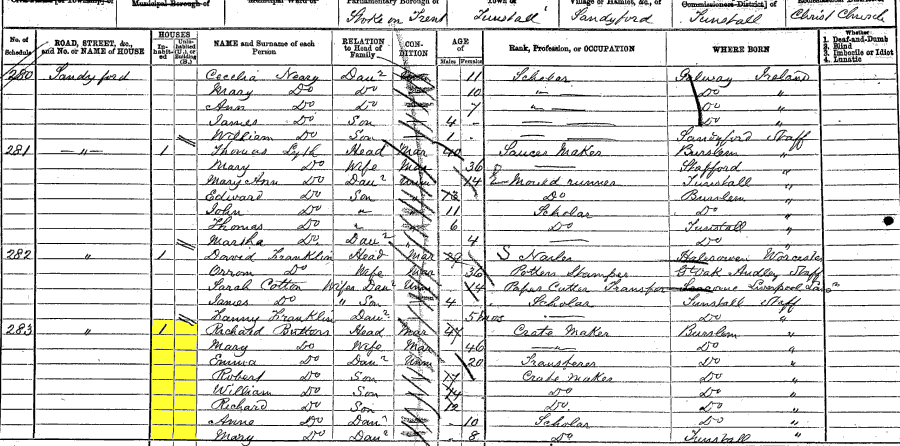 Civil Parish [or Township] of
Municipal Borough of
Municipal Ward of
Parliamentary Borough of
Town of
Village or Hamlet, &c., of
Stoke on Trent Tunstall Sandyford Tunstall Christ Church
No. of Schedule
ROAD, STREET, &c., and No. or NAME of HOUSE
HOUSES
Inhabited
Uninhabited (U.), or Building (B.)
NAME and Surname of each Person
RELATION to Head of Family
CONDITION
AGE
Males Females
Rank, Profession, or OCCUPATION
WHERE BORN
Whether
1. Deaf-and-Dumb
2. Blind
3. Imbecile or Idiot
4. Lunatic
280 Sandyford Cecelia Neary Daur 11 Scholar Galway Ireland
Mary Do Do 10 " Do "
Ann Do " 7 " Do "
James Do Son 4 Do "
William Do Son 1 Sandyford Staff
281 " 1 Thomas Lyth Head Mar 40 Saucer Maker Burslem "
Mary Do Wife Mar 36 Stafford "
Mary Ann Do Daur Unm 14 Mould runner Tunstall "
Edward Do Son 13 Do Burslem "
John Do " 11 Scholar Do "
Thomas Do " 6 Do Tunstall "
Martha Do Daur 4 Do "
282 " 1 David Franklin Head Mar 39 Nailer Halesowen Worcester
Do Wife Mar 36 Potters Stamper Audley Staff
Sarah Cotton Wifes Daur Unm 14 Paper Cutter Transfer Liverpool
James Do " Son 4 Scholar Tunstall Staff
Fanny Franklin Daur 5 mos Do "
283 " 1 Richard Head Mar 47 Crate Maker Burslem "
Mary Do Wife Mar 46 Do "
Emma Do Daur Unm 20 Transferer Do "
Robert Do Son 17 Crate Maker Do "
William Do Son 14 Do Do "
Richard Do Son 12 Do Do "
Anne Do Daur 10 Scholar Do "
Mary Do Daur 8 Do Tunstall "